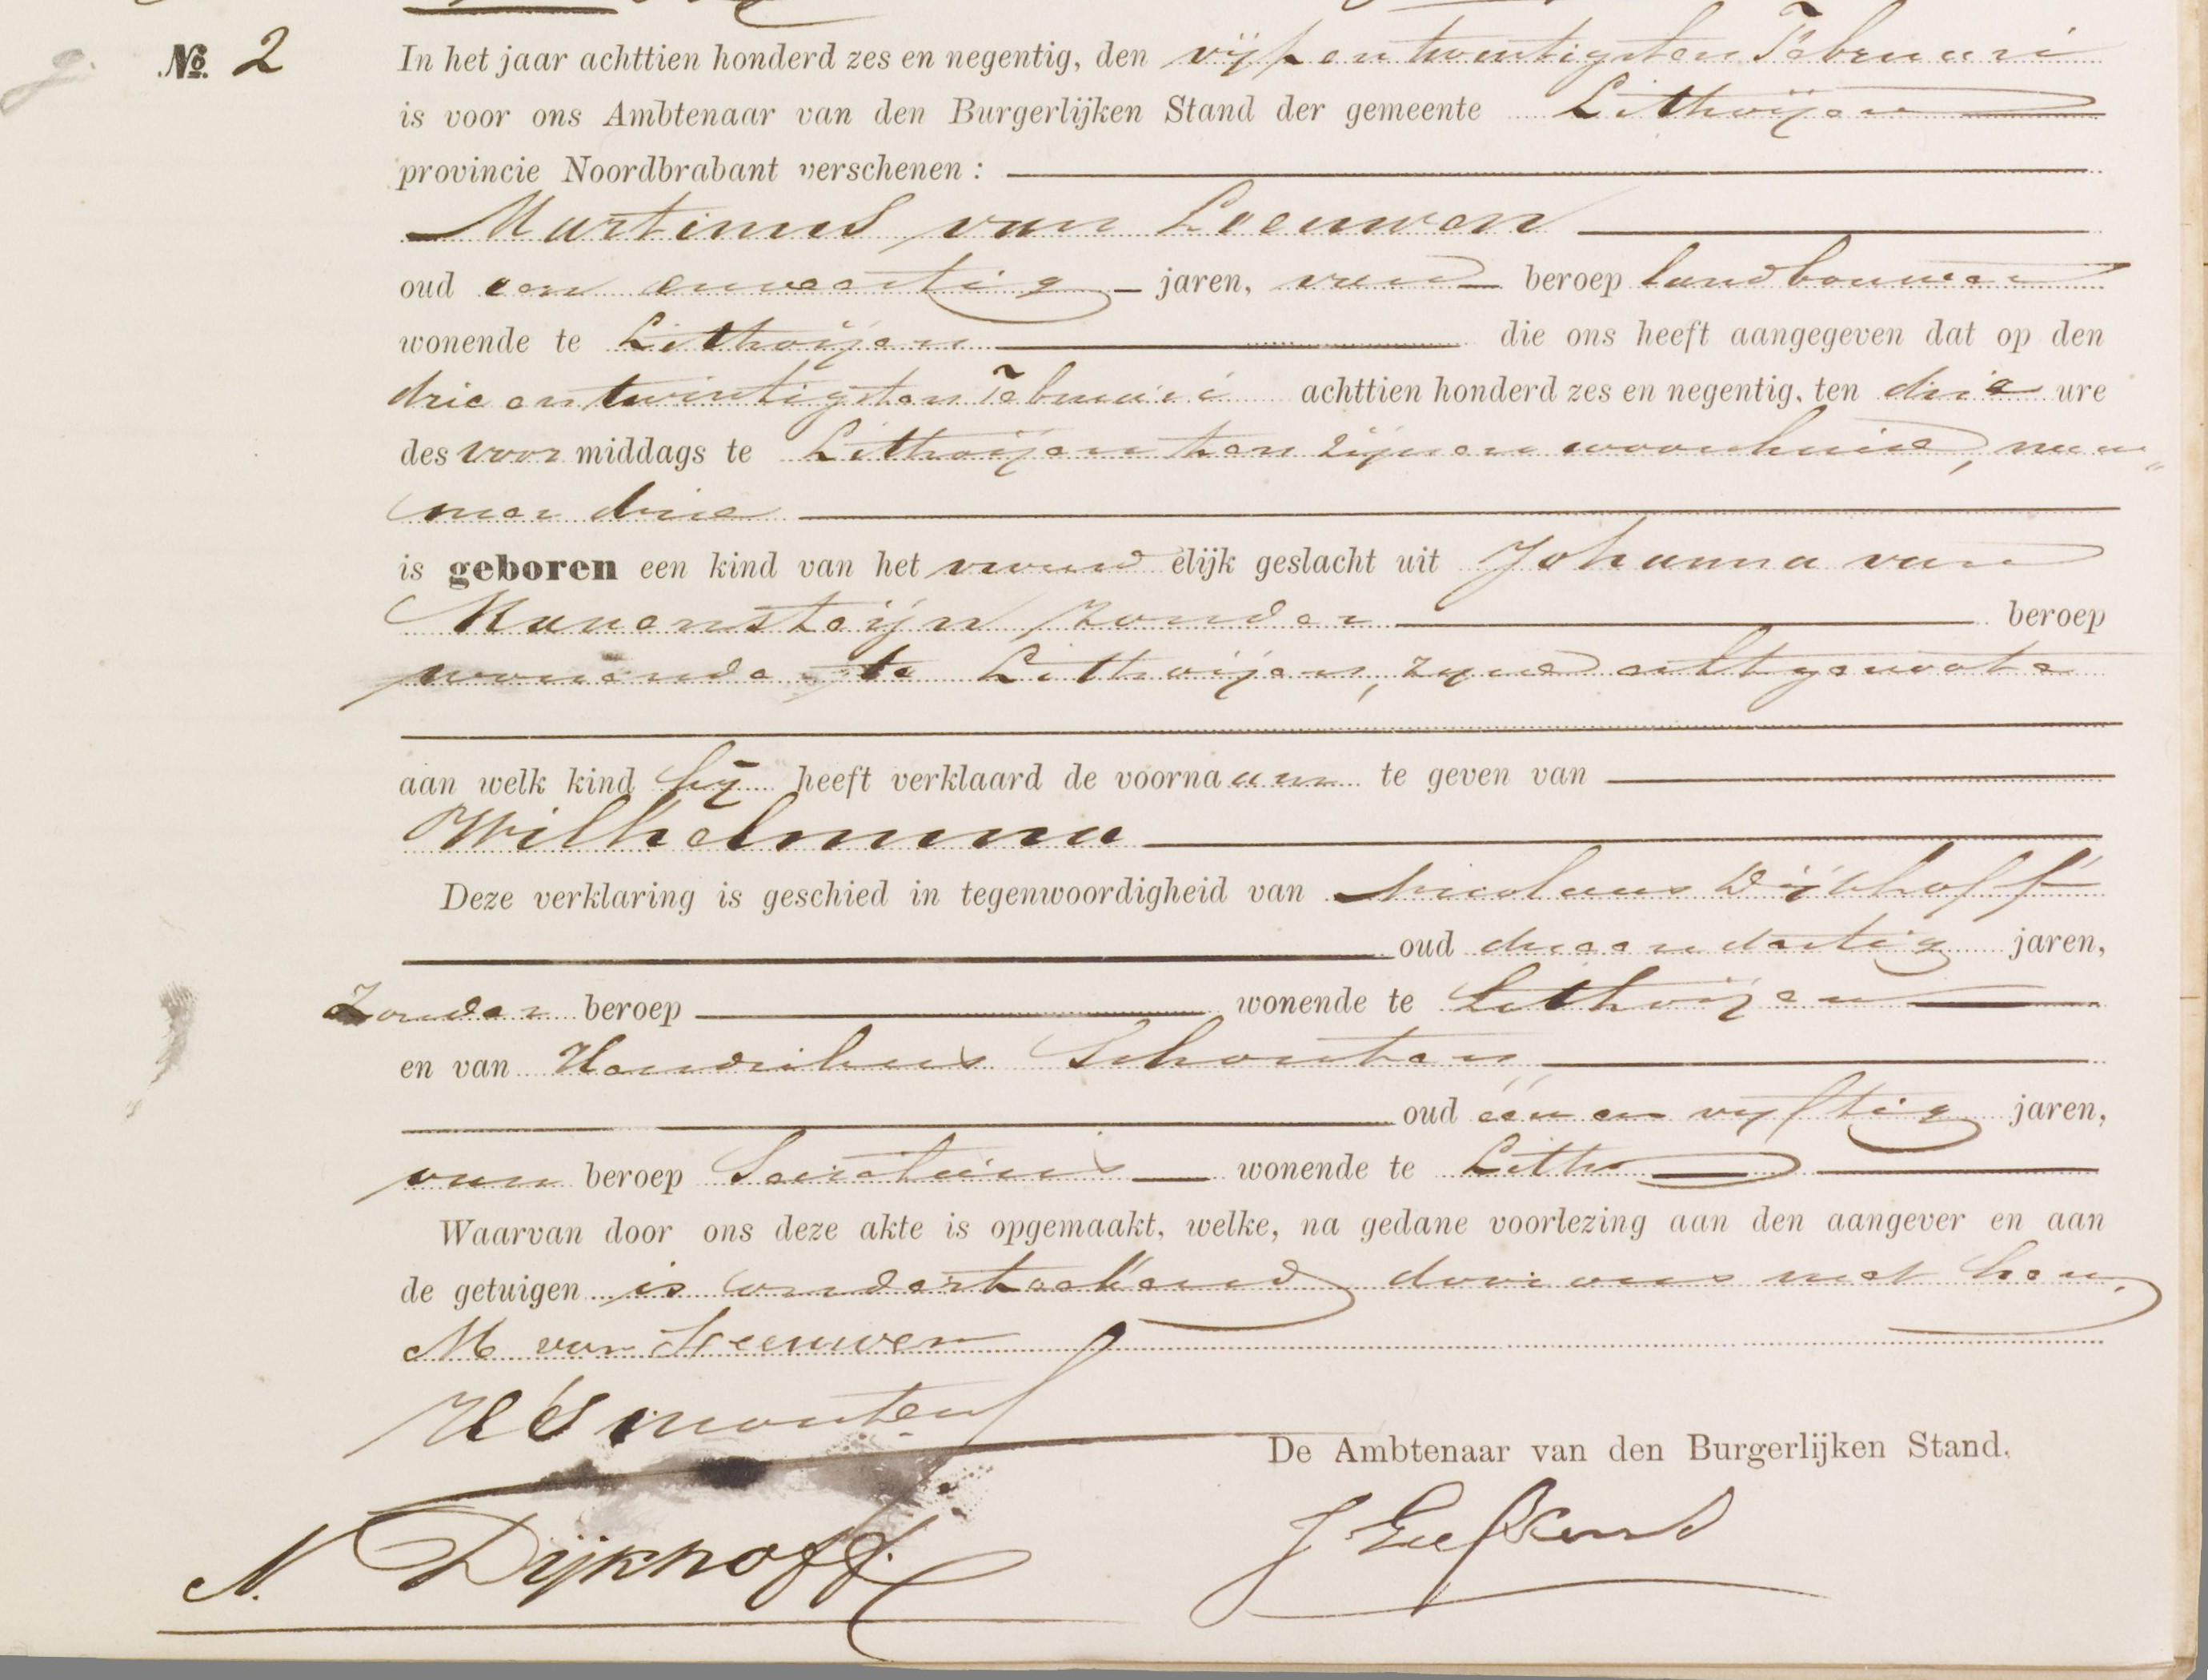 No 2
In het jaar achttien honderd zes en negentig, den vijf en twintigsten Februari
is voor ons Ambtenaar van den Burgerlijken Stand der gemeente Lithoijen
provincie Noordbrabant verschenen :
Martinus van Leeuwen
oud een en veertig jaren, van beroep landbouwer
wonende te Lithoijen die ons heeft aangegeven dat op den
drie en twintigsten Februari achttien honderd zes en negentig, ten drie ure
des voor middags te Lithoijen ten zijnen woonhuise, num„
mer drie
is geboren een kind van het vrouw elijk geslacht uit Johanna van
Ravensteijn zonder beroep
wonende te Lithoijen, zijne echtgenoote
aan welk kind hij heeft verklaard de voornaam te geven van
Wilhelmina
Deze verklaring is geschied in tegenwoordigheid van Nicolaas Dijkhoff
oud drieendertig jaren,
zonder beroep wonende te Lithoijen
en van Hendrikus Schouten
oud één en vijftig jaren,
van beroep Secretaris wonende te Lith
Waarvan door ons deze akte is opgemaakt, welke, na gedane voorlezing aan den aangever en aan
de getuigen is onderteekend door ons met hen.
M van Leeuwen
De Ambtenaar van den Burgerlijken Stand.
N. Dijkhoff